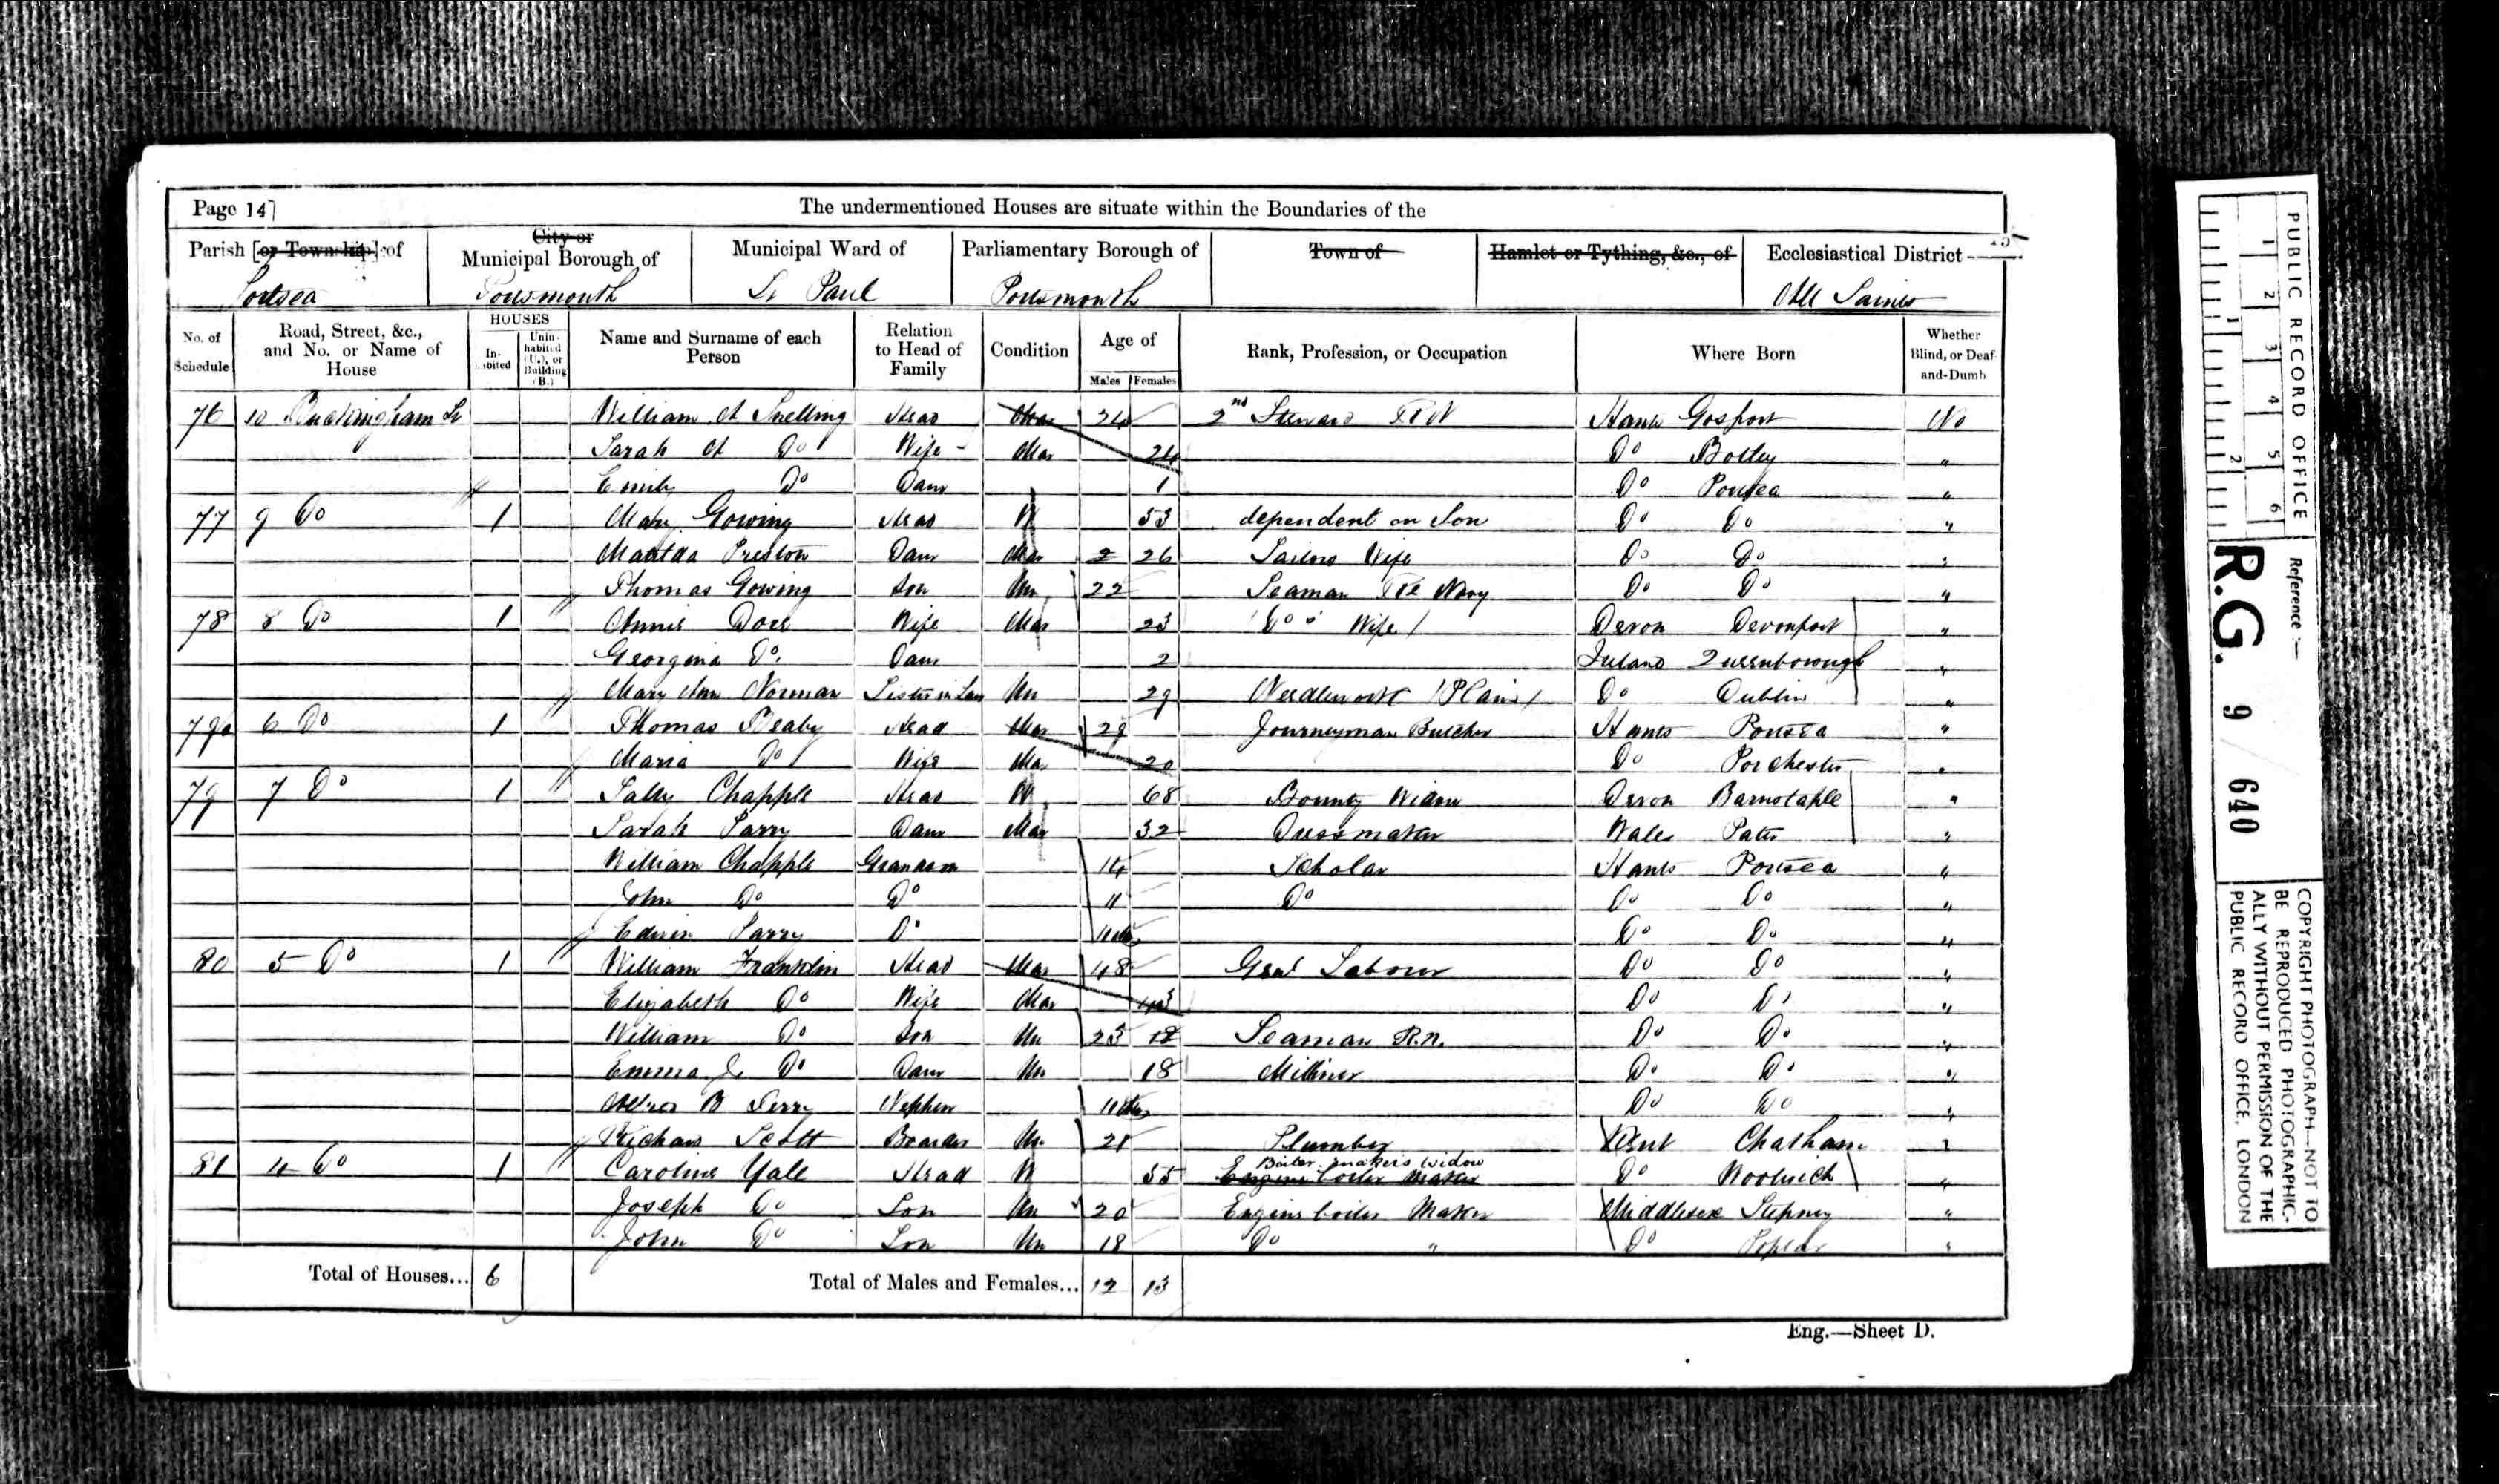 Page 147
The undermentioned Houses are situate within the Boundaries of the
Parish [or Township] of
City or Municipal Borough of
Municipal Ward of
Parliamentary Borough of
Town of
Hamlet or Tything, &c., of
Ecclesiastical District
Portsea
Portsmouth
St Paul
Portsmouth
All Saints
No. of Schedule
Road, Street, &c., and No. or Name of House
HOUSES
In-habited
Unin-habited (U.), or Building (B.)
Name and Surname of each Person
Relation to Head of Family
Condition
Age of
Males
Females
Rank, Profession, or Occupation
Where Born
Whether Blind, or Deaf-and-Dumb
76 10 Buckingham St William A Snelling Head Mar 24 2nd Steward Hants Gosport No
Sarah A Do Wife Mar 24 Do Botley "
Emily Do Daur 1 Do Portsea "
77 9 Do 1 Mary Gowing Head W 53 dependent on Son Do Do "
Matilda Preston Daur Mar 2 26 Tailors Wife Do Do "
Thomas Gowing Son Un 22 Seaman Navy Do Do "
78 8 Do 1 Annie Wife Mar 23 Do Wife Devon Devonport "
Georgina Do Daur 2 Ireland Queenborough "
Mary Ann Norman Sister in Law Un 29 Needlework (Plain) Do Dublin "
79a 6 Do 1 Thomas Head Mar 29 Journeyman Butcher Hants Portsea "
Maria Do Wife Mar 20 Do Porchester "
79 7 Do 1 Sally Chapple Head W 68 Bounty Widow Devon Barnstaple "
Sarah Parry Daur Mar 32 Dressmaker Wales Pater "
William Chapple Grandson 14 Scholar Hants Portsea "
John Do Do 11 Do Do Do "
Edwin Parry Do 11 Do Do "
80 5 Do 1 William Franklin Head Mar 48 Genl Labour Do Do "
Elizabeth Do Wife Mar 43 Do Do "
William Do Son Un 23 18 Seaman R.N. Do Do "
Emma J. Do Daur Un 18 Milliner Do Do "
B Nephew 11 Do Do "
Richard Scott Boarder Un 21 Plumber Kent Chatham "
81 4 Do 1 Caroline Yale Head W 55 Boiler makers Widow Engine boiler Maker Do Woolwich "
Joseph Do Son Un 20 Engine boiler Maker Middlesex Stepney "
John Do Son Un 18 Do " Do Poplar "
Total of Houses... 6
Total of Males and Females... 12 13
Eng.—Sheet D.
PUBLIC RECORD OFFICE
1 2 3 4 5 6
1 2
Reference:—
R.G. 9 / 640
COPYRIGHT PHOTOGRAPH—NOT TO
BE REPRODUCED PHOTOGRAPHIC-
ALLY WITHOUT PERMISSION OF THE
PUBLIC RECORD OFFICE, LONDON